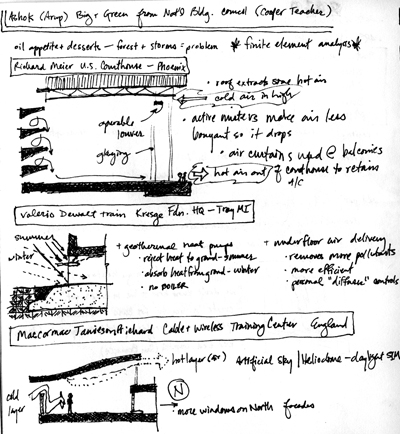 Ashok (Arup) Big + Green from Nat'l Bldg. council (Conger Teacher)
oil appetite + desserts — forest + storms = problem * finite element analysis *
Richard Meier U.S. Courthouse — Phoenix
• roof extracts some hot air
cold air in high
operable louver
• active misters make air less
bouyant so it drops
• air curtains used @ balconies
glazing
hot air out
of courthouse to retain
A/C
Valerio Dewalt train Kresge Fdn. HQ — Troy MI
summer
winter
+ geothermal heat pumps
• reject heat to ground - summer
• absorb heat from ground - winter
• no BOILER
+ underfloor air delivery
• removes more pollutants
• more efficient
• personal "diffuser" controls
MacCormac Jamieson Prichard Cable + Wireless Training Center England
hot layer
Artificial Sky / Heliodome - daylight SIM
cold layer
N
• more windows on North facades